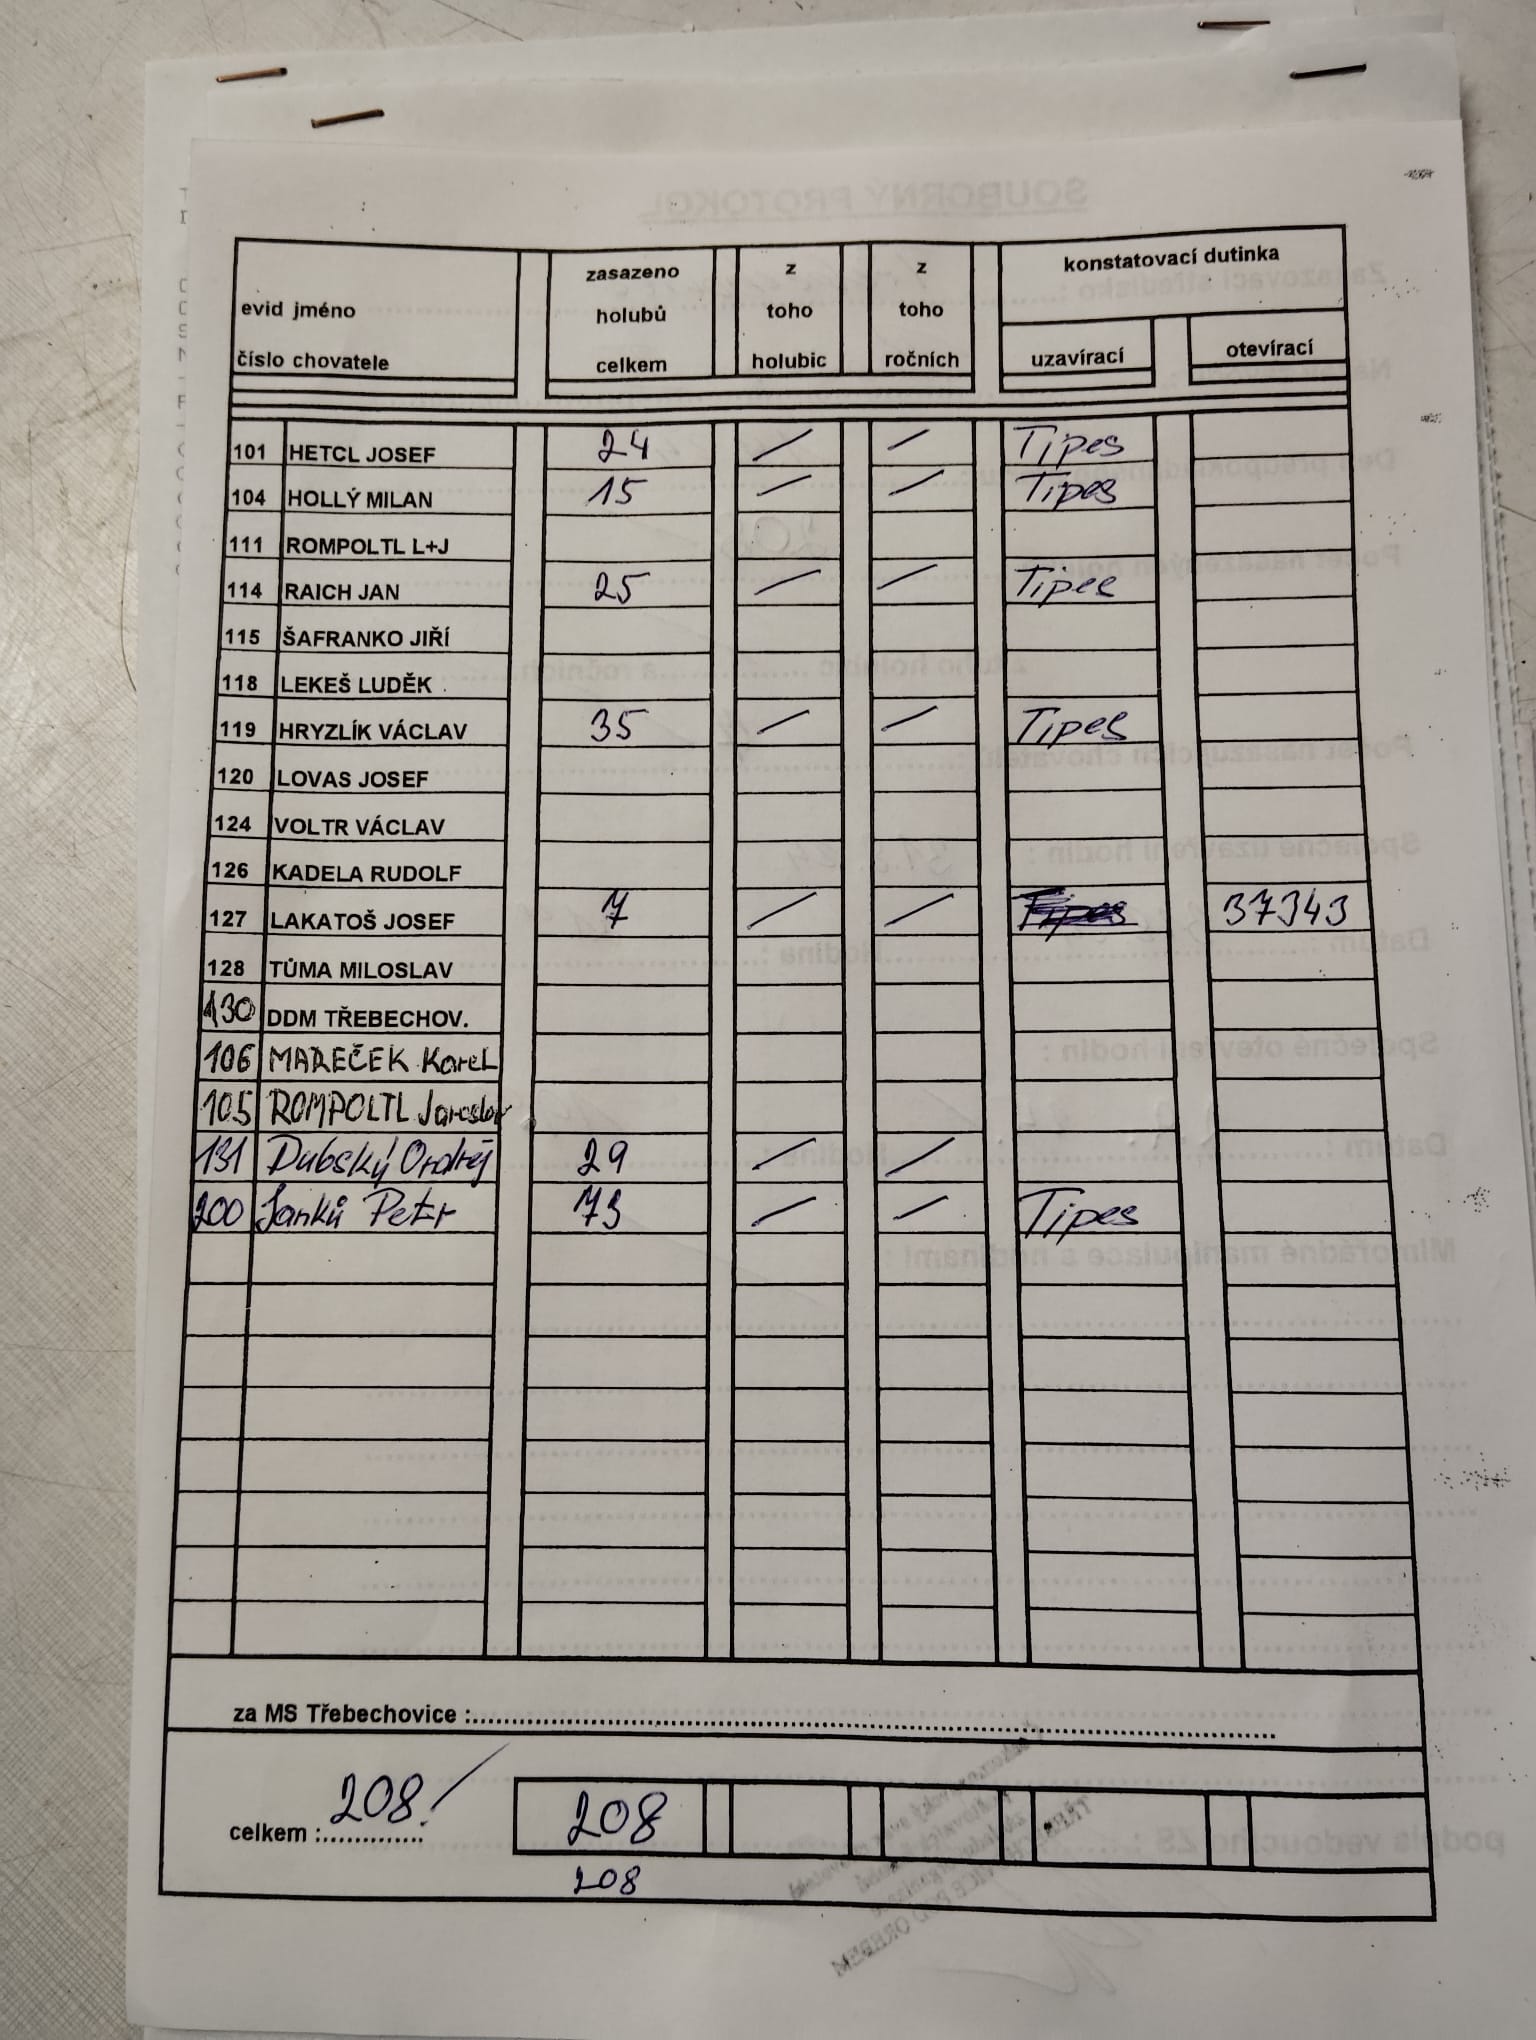 evid jméno
číslo chovatele
zasazeno
holubů
celkem
z
toho
holubic
z
toho
ročních
konstatovací dutinka
uzavírací
otevírací
101 HETCL JOSEF 24 / / Tipes
104 HOLLÝ MILAN 15 / / Tipes
111 ROMPOLTL L+J
114 RAICH JAN 25 / / Tipes
115 ŠAFRANKO JIŘÍ
118 LEKEŠ LUDĚK
119 HRYZLÍK VÁCLAV 35 / / Tipes
120 LOVAS JOSEF
124 VOLTR VÁCLAV
126 KADELA RUDOLF
127 LAKATOŠ JOSEF 7 / / Tipes 37343
128 TŮMA MILOSLAV
130 DDM TŘEBECHOV.
106 MAREČEK Karel
105 ROMPOLTL Jaroslav
131 Dubský Ondřej 29 / /
200 Janků Petr 73 / / Tipes
za MS Třebechovice :
celkem : 208! 208
208